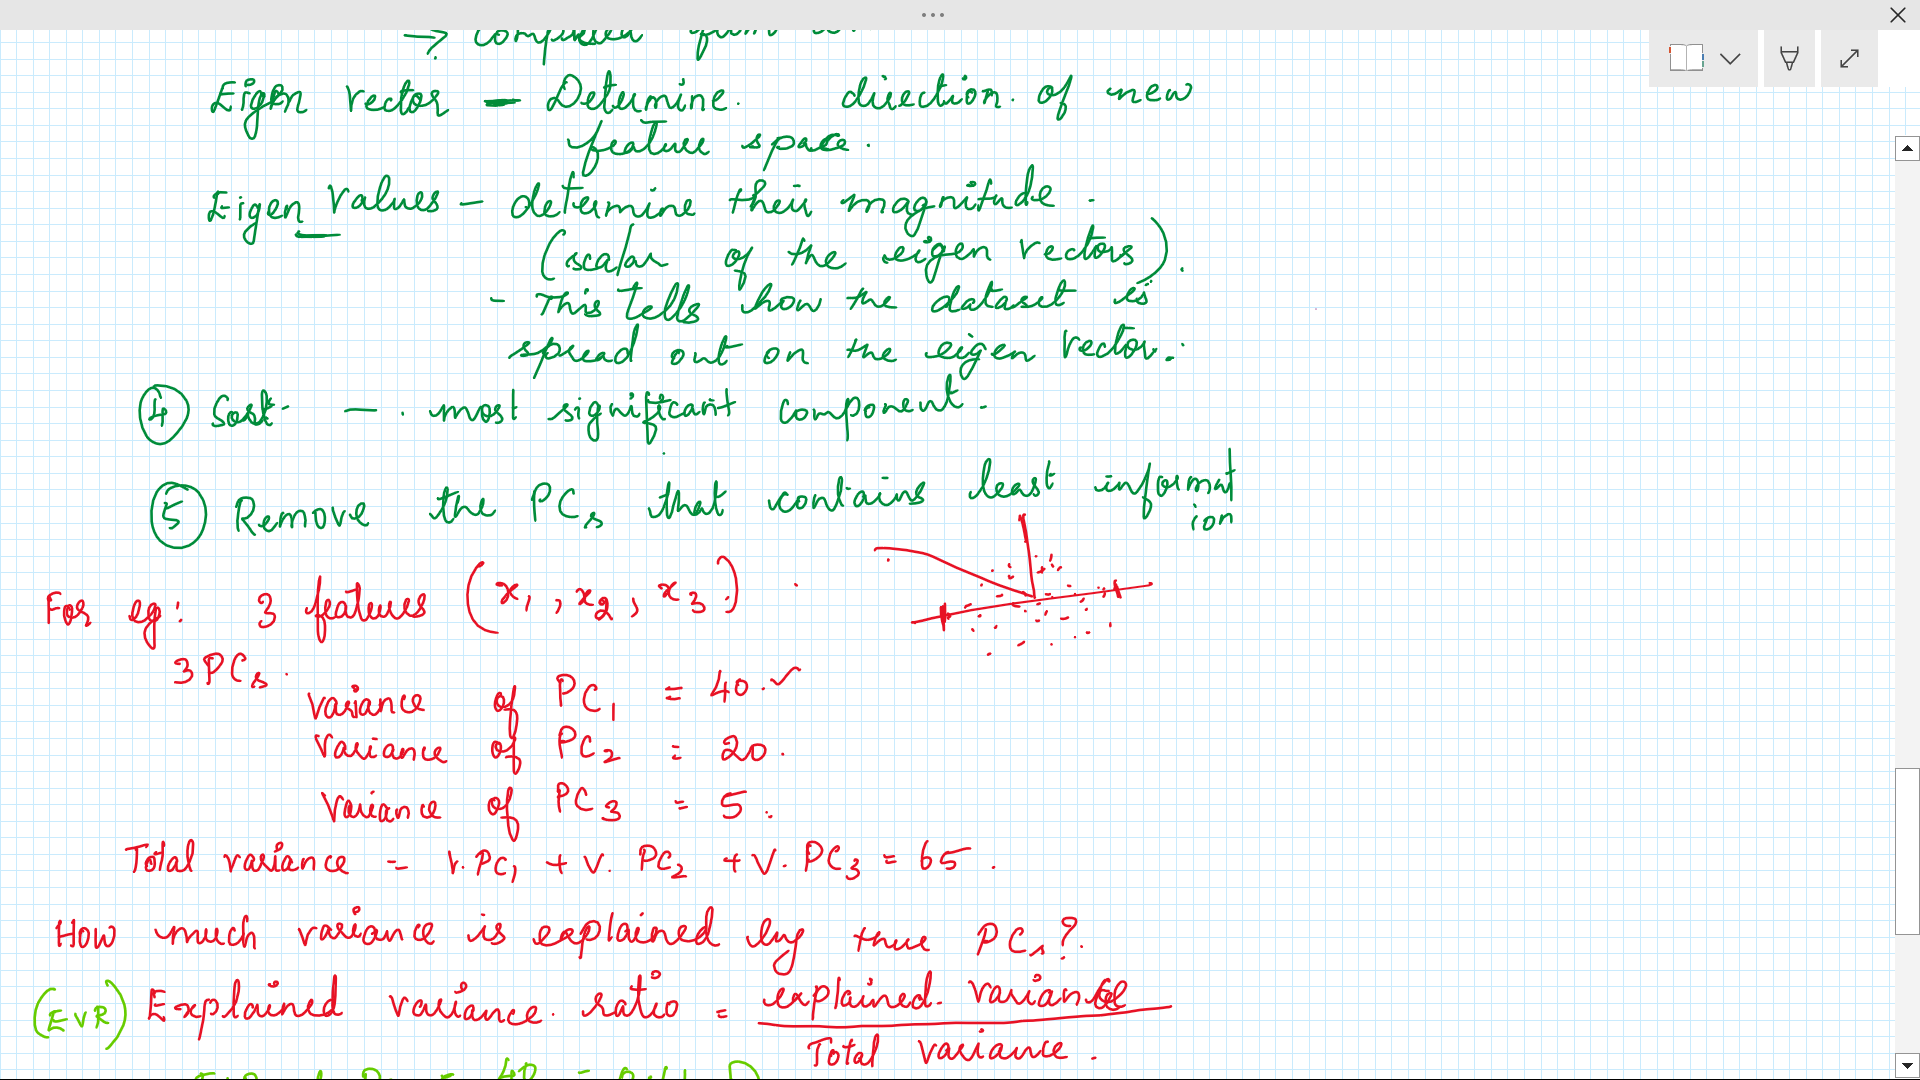 → computed from
Eigen vector - Determine. direction. of new
feature space.
Eigen values - determine their magnitude.
(scalar of the eigen vectors).
- This tells how the dataset is
spread out on the eigen vector.
④ Sort - most significant component.
⑤ Remove the PCs that contains least informat
ion
For eg: 3 features (x₁, x₂, x₃).
3 PCs.
variance of PC₁ = 40. ✓
variance of PC₂ = 20.
variance of PC₃ = 5.
Total variance = V. PC₁ + V. PC₂ + V. PC₃ = 65.
How much variance is explained by these PCs?
(EVR) Explained variance ratio = explained variance
Total variance.